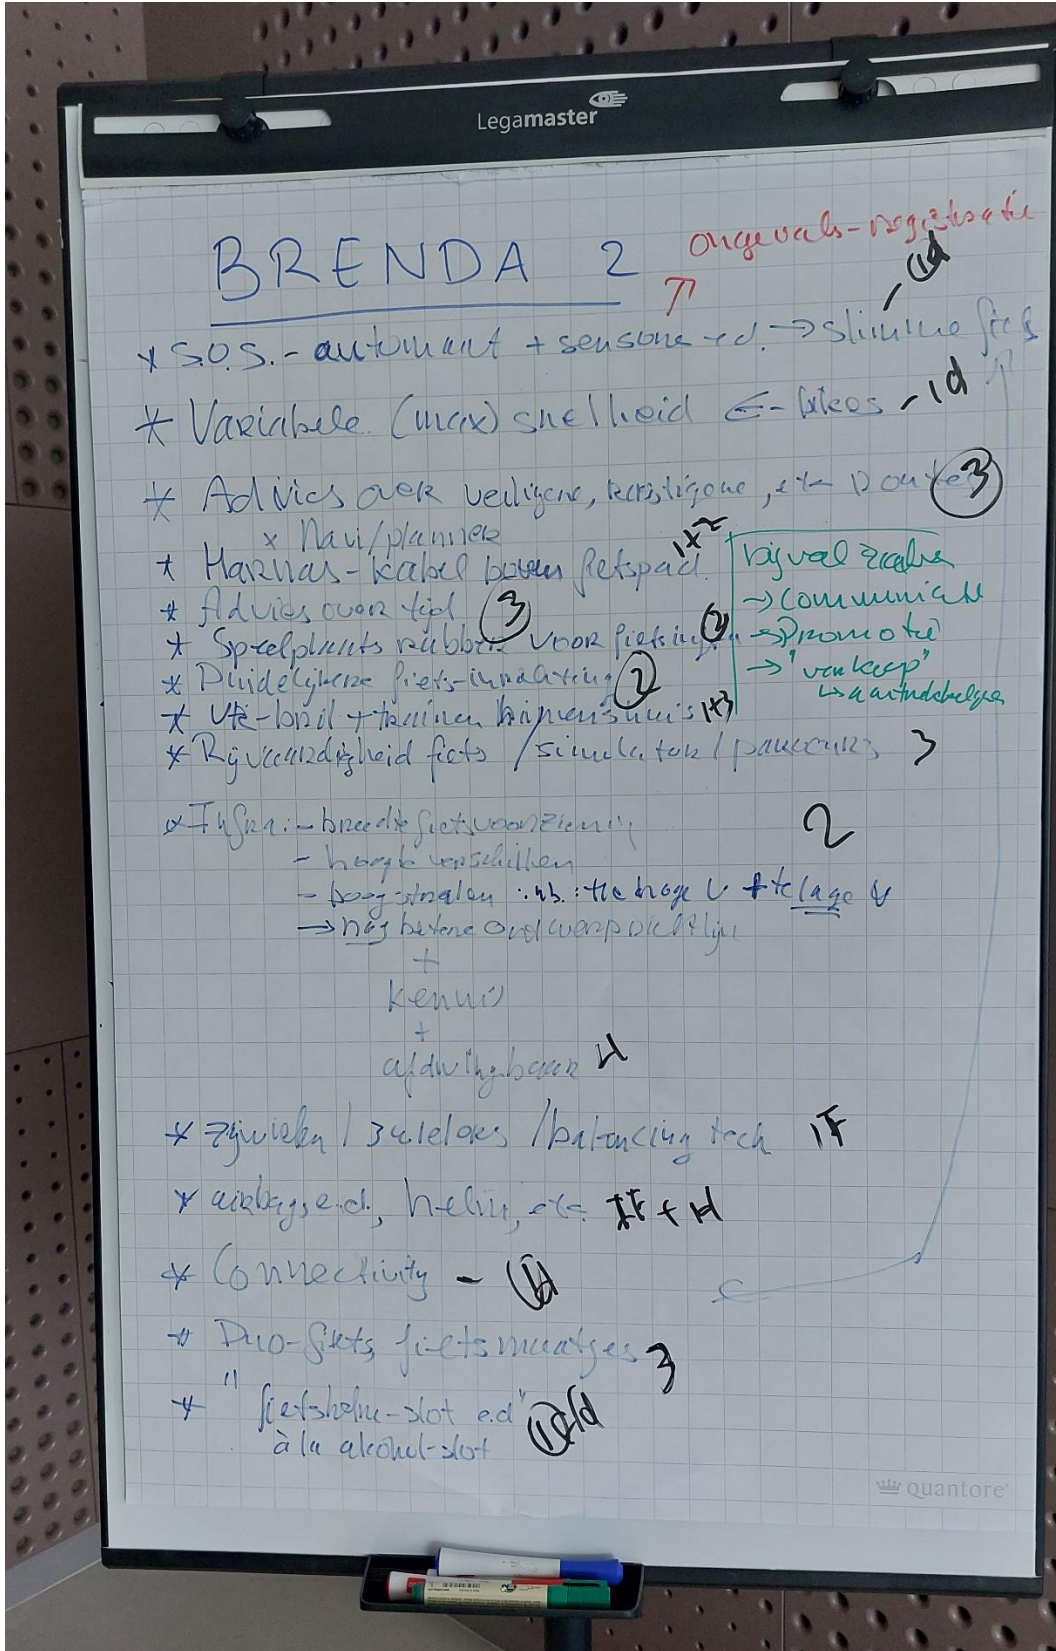 Legamaster
ongevals-registratie
BRENDA 2
↗
1d
* S.O.S.-automaat + sensoren e.d. → slimme fiets
* Variabele (max) snelheid E-bikes - 1d
* Advies over veiligere, rustigere, etc Routes 3
x Navi/planner
* Harnas-kabel boven fietspad 1+2
* Advies over tijd 3
* Speelplaats rubber voor fietsinfra 2
* Duidelijkere fiets-inrichting 2
* VR-bril + trainen 1+3
* Rijvaardigheid fiets / simulator / parcours 3
bij veel zaken
→ communicatie
→ Promotie
→ "verkoop"
* Infra: - breedte fietsvoorziening 2
- hoogte verschillen
- boogstralen i.v.m.: te hoge V + te lage V
→ nóg betere ontwerprichtlijn
+
kennis
+
afdwingbaar
* zijwielen / 3wielers / balancing tech 1F
* airbags e.d., helm, etc. 1F + 1d
* Connectivity - 1d
* Duo-fiets, fietsmaatjes 3
* "fietshelm-slot e.d"
à la alcohol-slot
quantore